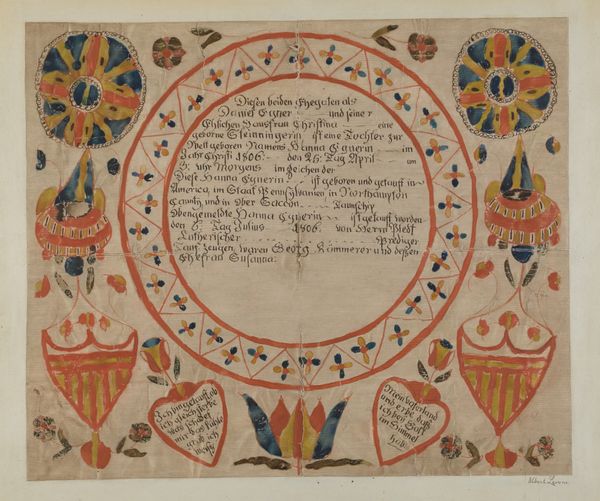 Diesen beiden Ehegaten als
Daniel Egner und seiner
Ehlichen Hausfrau Christina eine
geborne Steinningerin ist eine Tochter zur
Welt geboren Namens Hanna Egnerin im
Jahr Christi 1806. den 26. Tag April um
Uhr Morgens im Zeichen der
Diese Hanna Egnerin ist geboren und getauft in
America, im Staat Pennsylvanien in Northampton
Caunty und in Ober Saccon Taunschip
Obengemeldte Hanna Egnerin ist getauft worden
den 6. Tag Julius 1806. von Herrn
Lutherischer Prediger
Taufzeugen waren Georg Kömmerer und deßen
Ehefrau Susanna.
Ich bin getauft ob
ich gleich sterbe
was schadet
mir das kühle
grab ich
weiß
Mein Vaterland
und erbe das
ich bey Gott
im Himmel
hab.
Albert Levone